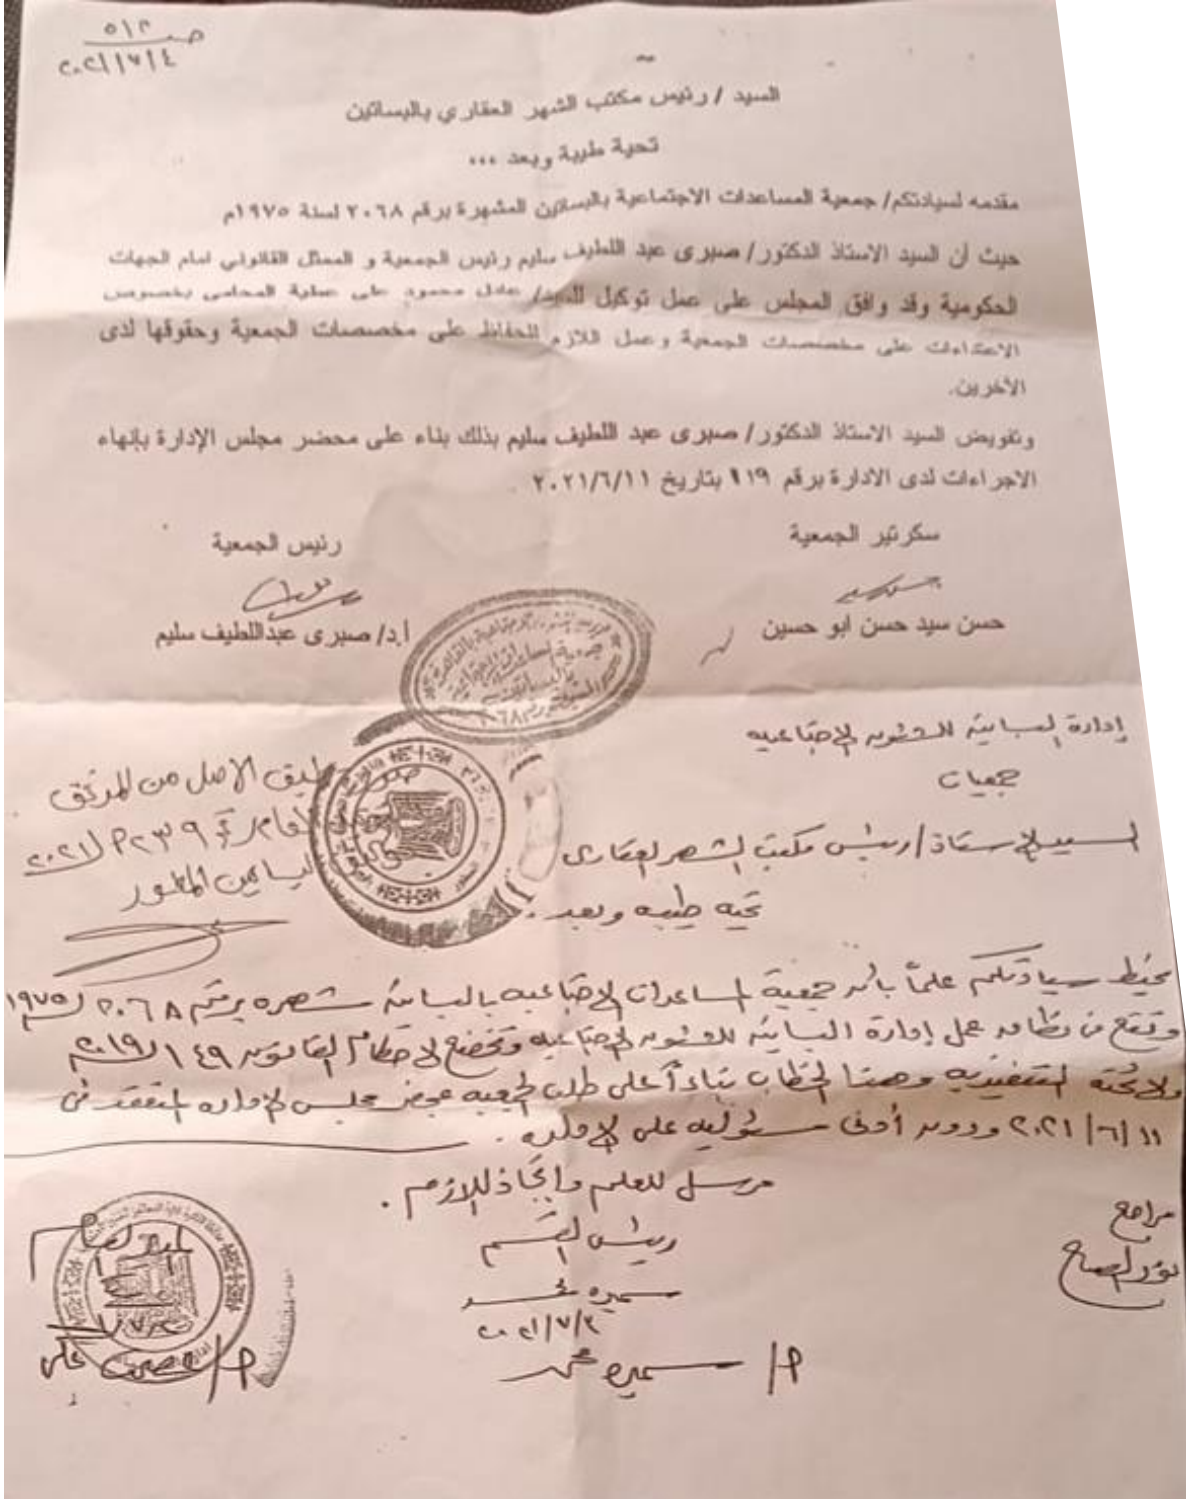 ص ٥١٢
٢٠٢١/٧/٤
السيد / رئيس مكتب الشهر العقاري بالبساتين
تحية طيبة وبعد ...
مقدمه لسيادتكم/ جمعية المساعدات الاجتماعية بالبساتين المشهرة برقم ٢٠٦٨ لسنة ١٩٧٥م
حيث أن السيد الاستاذ الدكتور/ صبرى عبد اللطيف سليم رئيس الجمعية و الممثل القانوني امام الجهات
الحكومية وقد وافق المجلس على عمل توكيل للسيد/ عادل محمود على عطية المحامى بخصوص
الاعتداءات على مخصصات الجمعية وعمل اللازم للحفاظ على مخصصات الجمعية وحقوقها لدى
الآخرين.
وتفويض السيد الاستاذ الدكتور/ صبرى عبد اللطيف سليم بذلك بناء على محضر مجلس الإدارة بإنهاء
الاجراءات لدى الادارة برقم ١١٩ بتاريخ ٢٠٢١/٦/١١
سكرتير الجمعية
رئيس الجمعية
حسن سيد حسن ابو حسين
أ.د/ صبرى عبداللطيف سليم
إدارة البساتين للشئون الإجتماعيه
جمعيات
السيد الاستاذ / رئيس مكتب الشهر العقارى
تحيه طيبه وبعد
صورة طبق الاصل من المرفق
بالمحضر رقم ٢٣٩ م لسنة ٢٠٢١
البساتين المطور
نحيط سيادتكم علماً بأن جمعية المساعدات الإجتماعيه بالبساتين مشهره برقم ٢٠٦٨ لسنة ١٩٧٥
وتقع فى نطاق عمل إدارة البساتين للشئون الإجتماعيه وتخضع لاحكام القانون ١٤٩ لسنة ٢٠١٩
ولائحته التنفيذيه وهذا الخطاب بناءاً على طلب الجمعيه بمحضر مجلس الإداره المنعقد فى
٢٠٢١/٦/١١ ودون أدنى مسئوليه على الإداره .
مرسل للعلم واتخاذ اللازم .
رئيس القسم
مراجع
نور الصباح
سميره محمد
٢٠٢١/٧/٢
م/ سميره محمد